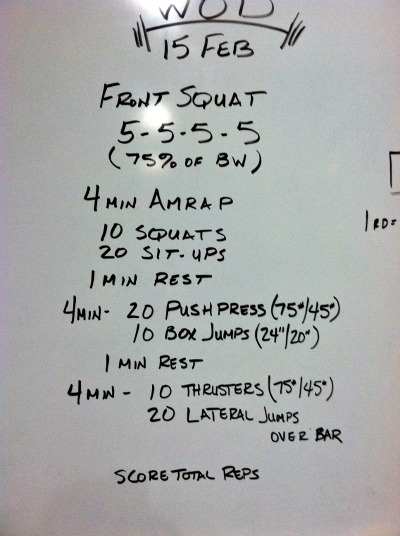 WOD
15 FEB
FRONT SQUAT
5-5-5-5
(75% OF BW)
4 MIN AMRAP
10 SQUATS
20 SIT-UPS
1 MIN REST
4 MIN- 20 PUSH PRESS (75#/45#)
10 BOX JUMPS (24"/20")
1 MIN REST
4 MIN - 10 THRUSTERS (75#/45#)
20 LATERAL JUMPS
OVER BAR
SCORE TOTAL REPS
1 RD=